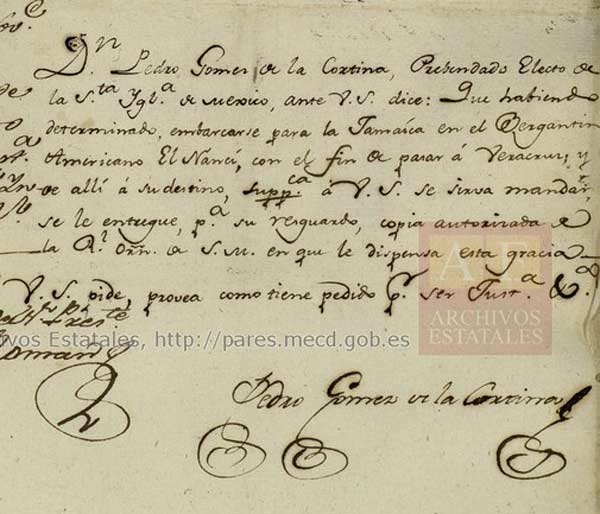 Dn. Pedro Gomez de la Cortina, Prebendado Electo de
la Sta. Ygla. de Mexico, ante V. S. dice: Que habiendo
determinado, embarcarse para la Jamaica en el Bergantin
Americano El Nanci, con el fin de pasar á Veracruz, y
de allí á su destino, suppca. á V. S. se sirva mandar,
se le entregue, pa. su resguardo, copia autorizada de
la Rl. Orn. de S. M. en que le dispensa esta gracia
V. S. pide, provea como tiene pedido pr. ser Justa. &a.
Pedro Gomez de la Cortina
ARCHIVOS
ESTATALES
Archivos Estatales, http://pares.mecd.gob.es